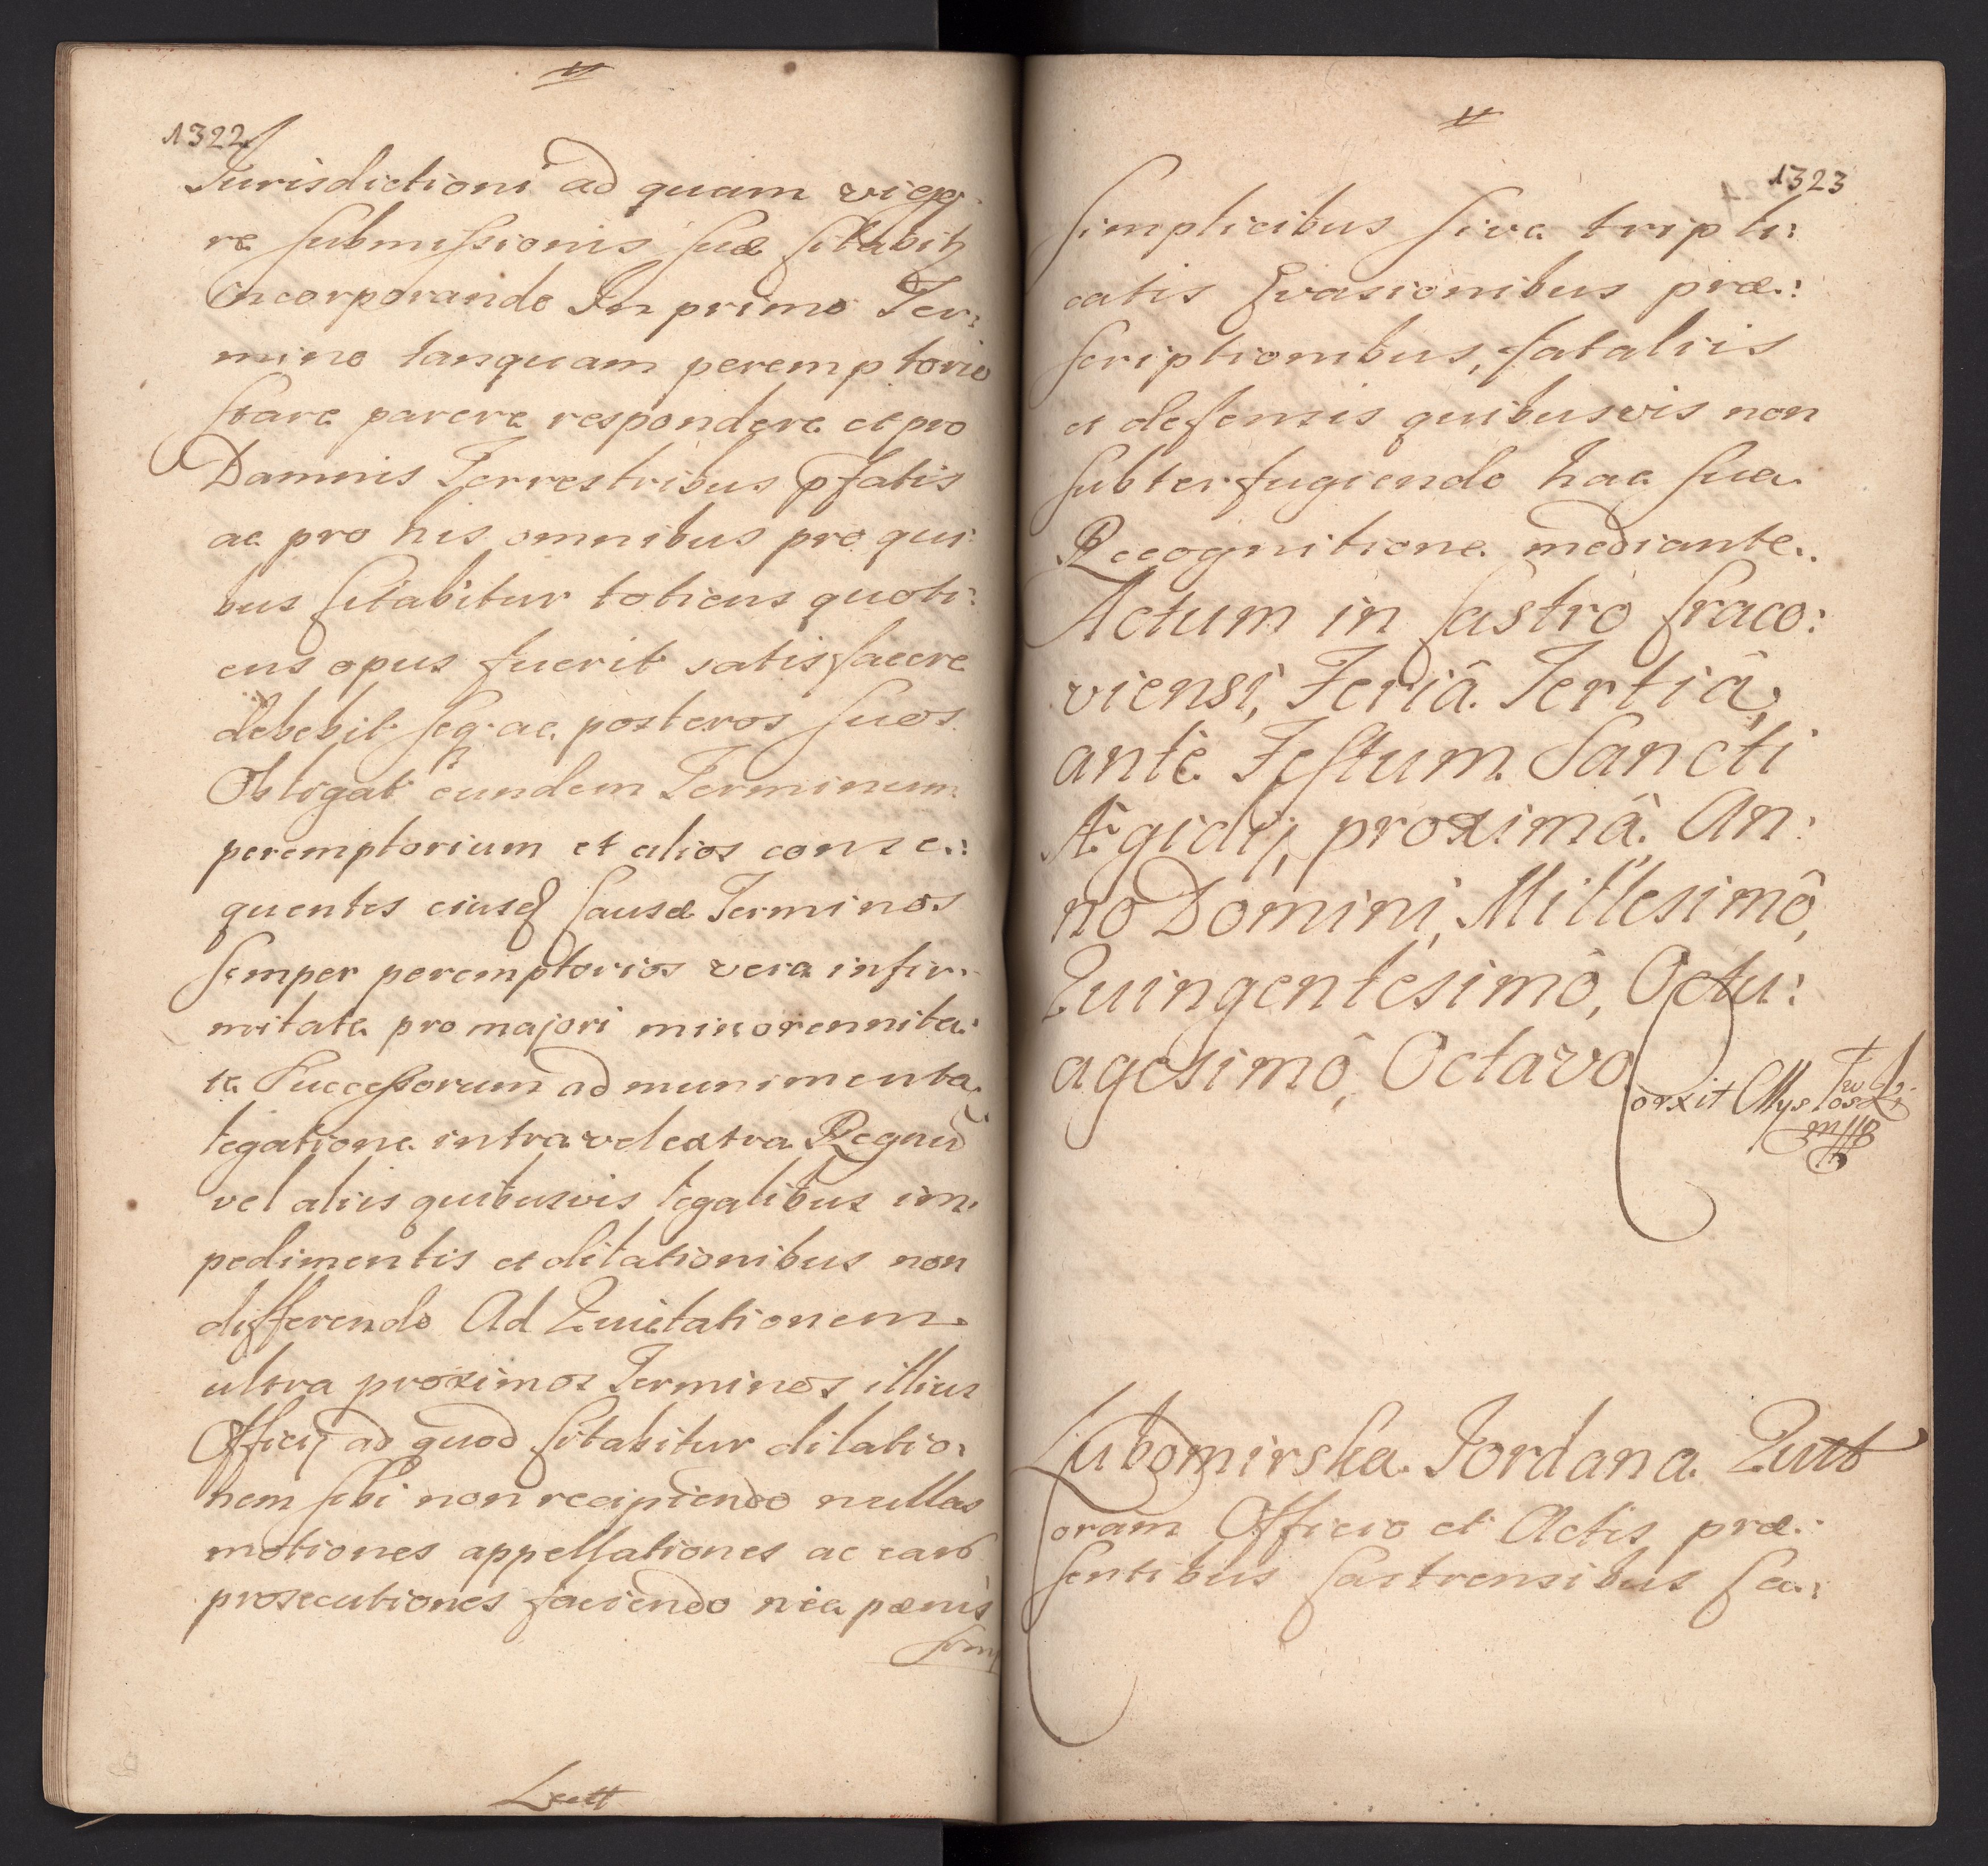 1322
Jurisdictioni ad quam vigo
re submissionis suæ citabit
incorporando In primo Ter:
mino tanquam peremptorio
stare parere respondere et pro
Damnis Terrestribus pfatis
ac pro his omnibus pro qui
bus citabitur totiens quoti:
ens opus fuerit satisfacere
debebit seq ac posteros suos
Obligat eundem Terminum
peremptorium et alios conse:
quentes eiusd Causæ Terminos
semper peremptorios vera infir:
mitate pro majori minorennita:
te Successorum ad munimenta
legatione intra vel extra Regnū
vel aliis quibusvis legalibus im:
pedimentis et dilationibus non
differendo Ad Quietationem
ultra proximos Terminos illius
Officij ad quod citabitur dilatio:
nem sibi non recipiendo nullas
motiones appellationes ac earū
prosecutiones faciendo nec pænis
simp
1323
simplicibus sive tripli:
catis Evasionibus præ:
scriptionibus, fataliis
et defensis quibusvis non
subterfugiendo hac sua
Recognitione mediante.
Actum in Castro Craco:
viensi, Feriâ Tertiâ,
ante Festum Sancti
Ægidij, proximâ. An:
no Domini, Millesimô,
Quingentesimô, Octu:
agesimô, Octavo
Corxit
mpp
Lubomirska Jordana Quitt
Coram Officio et Actis præ:
sentibus Castrensibus Ca: